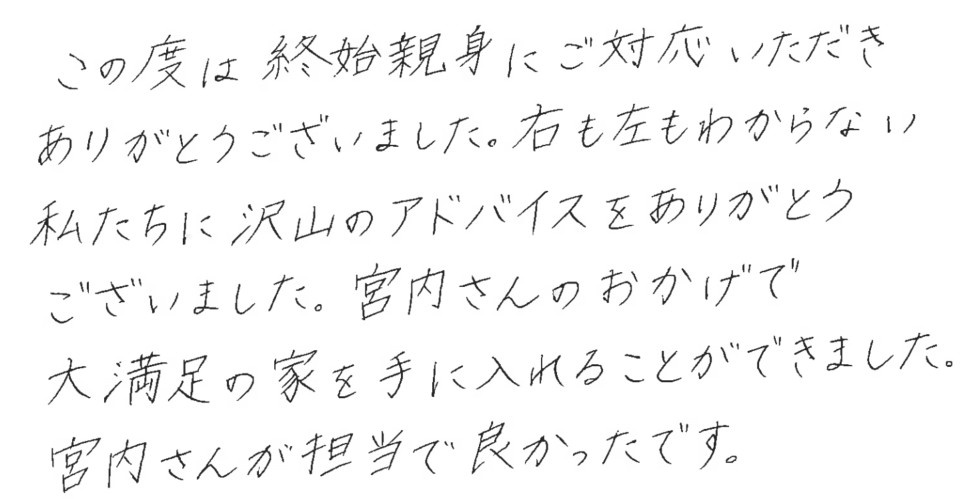 この度は終始親身にご対応いただき
ありがとうございました。右も左もわからない
私たちに沢山のアドバイスをありがとう
ございました。宮内さんのおかげで
大満足の家を手に入れることができました。
宮内さんが担当で良かったです。